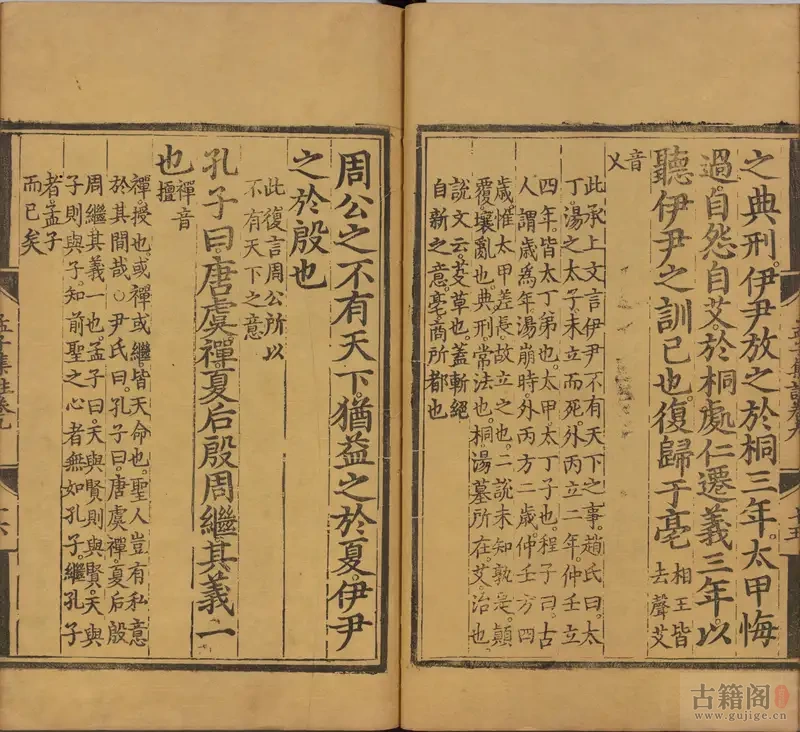 之典刑伊尹放之於桐三年太甲悔
過自怨自艾於桐處仁遷義三年以
聽伊尹之訓己也復歸于亳相王皆去聲艾
音乂
此承上文言伊尹不有天下之事趙氏曰太
丁湯之太子未立而死外丙立二年仲壬立
四年皆太丁弟也太甲太丁子也程子曰古
人謂歲爲年湯崩時外丙方二歲仲壬方四
歲惟太甲差長故立之也二說未知孰是顛
覆壞亂也典刑常法也桐湯墓所在艾治也
說文云芟草也蓋斬絕
自新之意亳商所都也
周公之不有天下猶益之於夏伊尹
之於殷也
此復言周公所以
不有天下之意
孔子曰唐虞禪夏后殷周繼其義一
也禪音擅
禪授也或禪或繼皆天命也聖人豈有私意
於其間哉○尹氏曰孔子曰唐虞禪夏后殷
周繼其義一也孟子曰天與賢則與賢天與
子則與子知前聖之心者無如孔子繼孔子
者孟子
而已矣
孟子集註卷九
古籍阁
www.gujige.cn